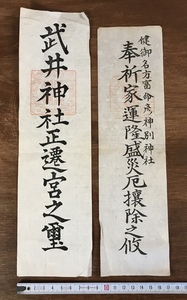 健御名方富命彦神別神社
奉祈家運隆盛災厄攘除之攸
武井神社正遷宮之璽